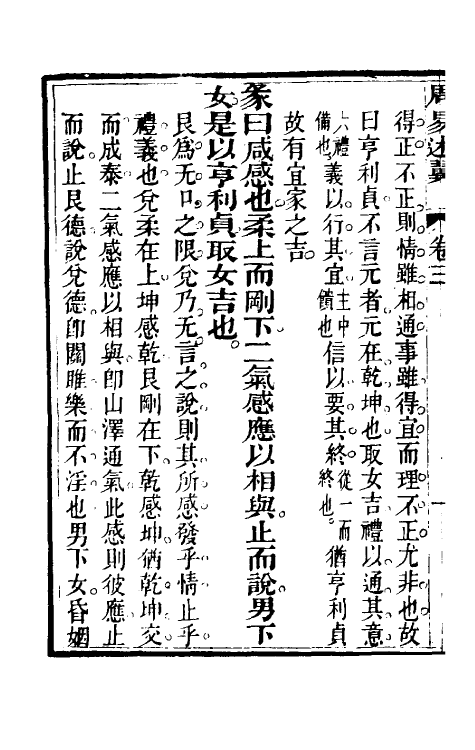 周易述翼　卷三　一
得正不正則情雖相通事雖得宜而理不正尤非也故
曰亨利貞不言元者元在乾坤也取女吉禮以通其意
六禮備也義以行其宜主中饋也信以要其終從一而終也猶亨利貞
故有宜家之吉
彖曰咸感也柔上而剛下二氣感應以相與止而說男下
女是以亨利貞取女吉也
艮為无口之限兌乃无言之說則其所感發乎情止乎
禮義也兌柔在上坤感乾艮剛在下乾感坤猶乾坤交
而成泰二氣感應以相與卽山澤通氣此感則彼應止
而說止艮德說兌德卽關雎樂而不淫也男下女昏姻